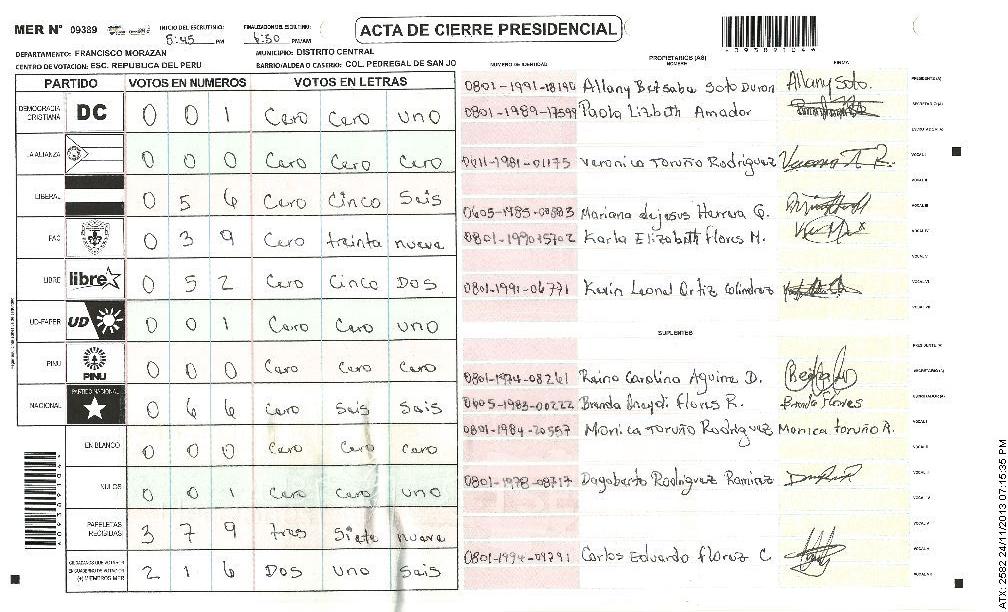 MER N° 09389
INICIO DEL ESCRUTINIO: 5:45 PM
FINALIZACION DEL ESCRUTINIO: 6:50 PM/AM
ACTA DE CIERRE PRESIDENCIAL
DEPARTAMENTO: FRANCISCO MORAZAN
MUNICIPIO: DISTRITO CENTRAL
CENTRO DE VOTACION: ESC. REPUBLICA DEL PERU
BARRIO/ALDEA O CASERIO: COL. PEDREGAL DE SAN JO
PARTIDO VOTOS EN NUMEROS VOTOS EN LETRAS
DEMOCRACIA CRISTIANA DC 0 0 1 Cero Cero uno
LA ALIANZA 0 0 0 Cero Cero Cero
LIBERAL 0 5 6 Cero Cinco Seis
PAC 0 3 9 Cero treinta nueve
LIBRE libre 0 5 2 Cero Cinco Dos
UD-FAPER UD 0 0 1 Cero Cero uno
PINU PINU 0 0 0 Cero Cero Cero
NACIONAL PARTIDO NACIONAL 0 6 6 Cero Seis Seis
EN BLANCO 0 0 0 Cero Cero Cero
NULOS 0 0 1 Cero Cero uno
PAPELETAS RECIBIDAS 3 7 9 tres Siete nueve
(+) MIEMBROS MER 2 1 6 Dos uno Seis
NUMERO DE IDENTIDAD PROPIETARIOS (AS) NOMBRE FIRMA
0801-1991-18190 Allany Betsabe Soto Duron Allany Soto. PRESIDENTE(A)
0801-1989-17599 Paola Lizbeth Amador SECRETARIO(A)
ESCRUTADOR(A)
0611-1981-01175 Veronica Toruño Rodriguez VOCAL I
VOCAL II
0605-1985-00883 Mariana dejesus Herrera G. VOCAL III
0801-1990-15702 Karla Elizabeth Flores M. VOCAL IV
VOCAL V
0801-1991-06771 Kevin Leonel Ortiz Colindrez VOCAL VI
VOCAL VII
SUPLENTES
PRESIDENTE(A)
0801-1974-08261 Reina Carolina Aguirre D. SECRETARIO(A)
0605-1983-00222 Brenda Flores R. Brenda Flores ESCRUTADOR(A)
0801-1984-20557 Monica Toruño Rodriguez Monica Toruño R. VOCAL I
VOCAL II
0801-1978-08717 Dagoberto Rodriguez Ramirez VOCAL III
VOCAL IV
VOCAL V
0801-1994-09791 Carlos Eduardo Florez C VOCAL VI
VOCAL VII
ATX: 2582 24/11/2013 07:15:35 PM